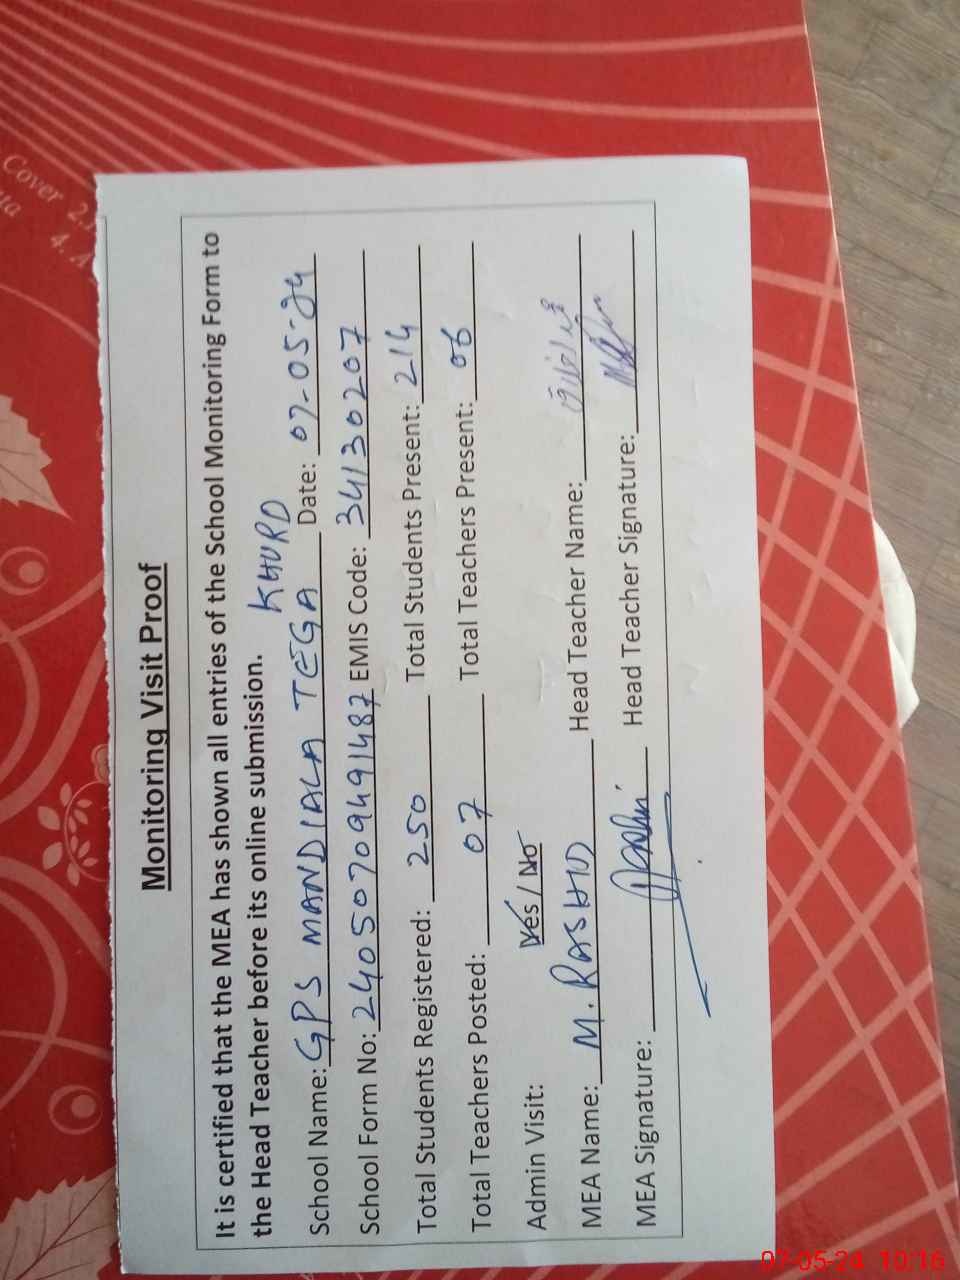 Cover 2.
4. A
Monitoring Visit Proof
It is certified that the MEA has shown all entries of the School Monitoring Form to
the Head Teacher before its online submission.
School Name: GPS MANDIALA TEGA KHURD Date: 07-05-24
School Form No: 24050709491487 EMIS Code: 34130207
Total Students Registered: 250 Total Students Present: 214
Total Teachers Posted: 07 Total Teachers Present: 06
Admin Visit: Yes / No
MEA Name: M. RASHID Head Teacher Name:
MEA Signature: Head Teacher Signature:
07-05-24 10:16